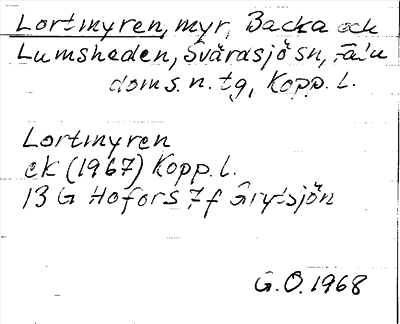 Lortmyren, myr, Backa och
Lumsheden, Svärdsjö sn, Falu
doms. n. tg, Kopp. l.
Lortmyren
ek (1967) Kopp. l.
13 G Hofors 7 f Grytsjön
G.O. 1968